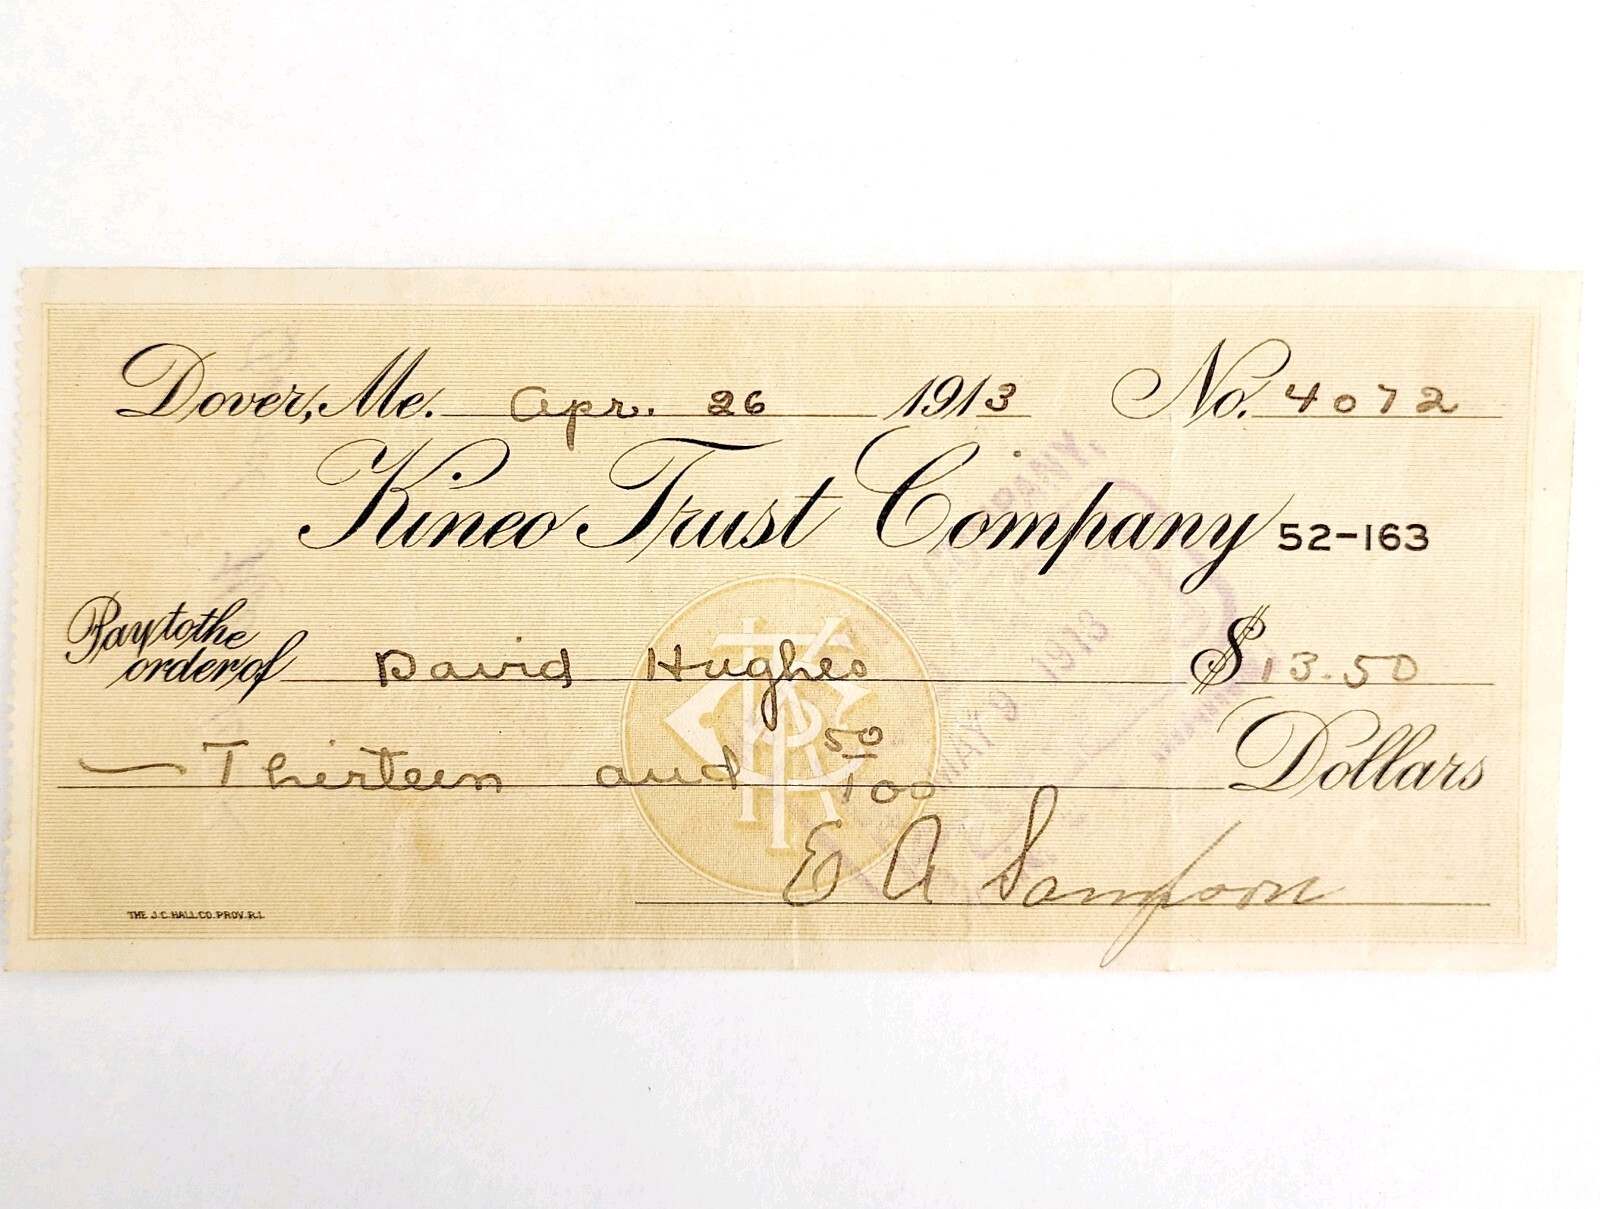 Dover, Me. Apr. 26 1913 No. 4072
Kineo Trust Company 52-163
Pay to the
order of David Hughes $13.50
Thirteen and 50/100 Dollars
E A Sampson
THE J.C. HALL CO. PROV. R.I.
PANY,
MAY 9 1913